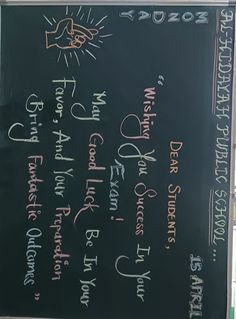 AL-HIDAYAH PUBLIC SCHOOL...
MONDAY
15 APRIL
DEAR STUDENTS,
"Wishing You Success In Your
Exam!
May Good Luck Be In Your
Favor, And Your Preparation
Bring Fantastic Outcomes"